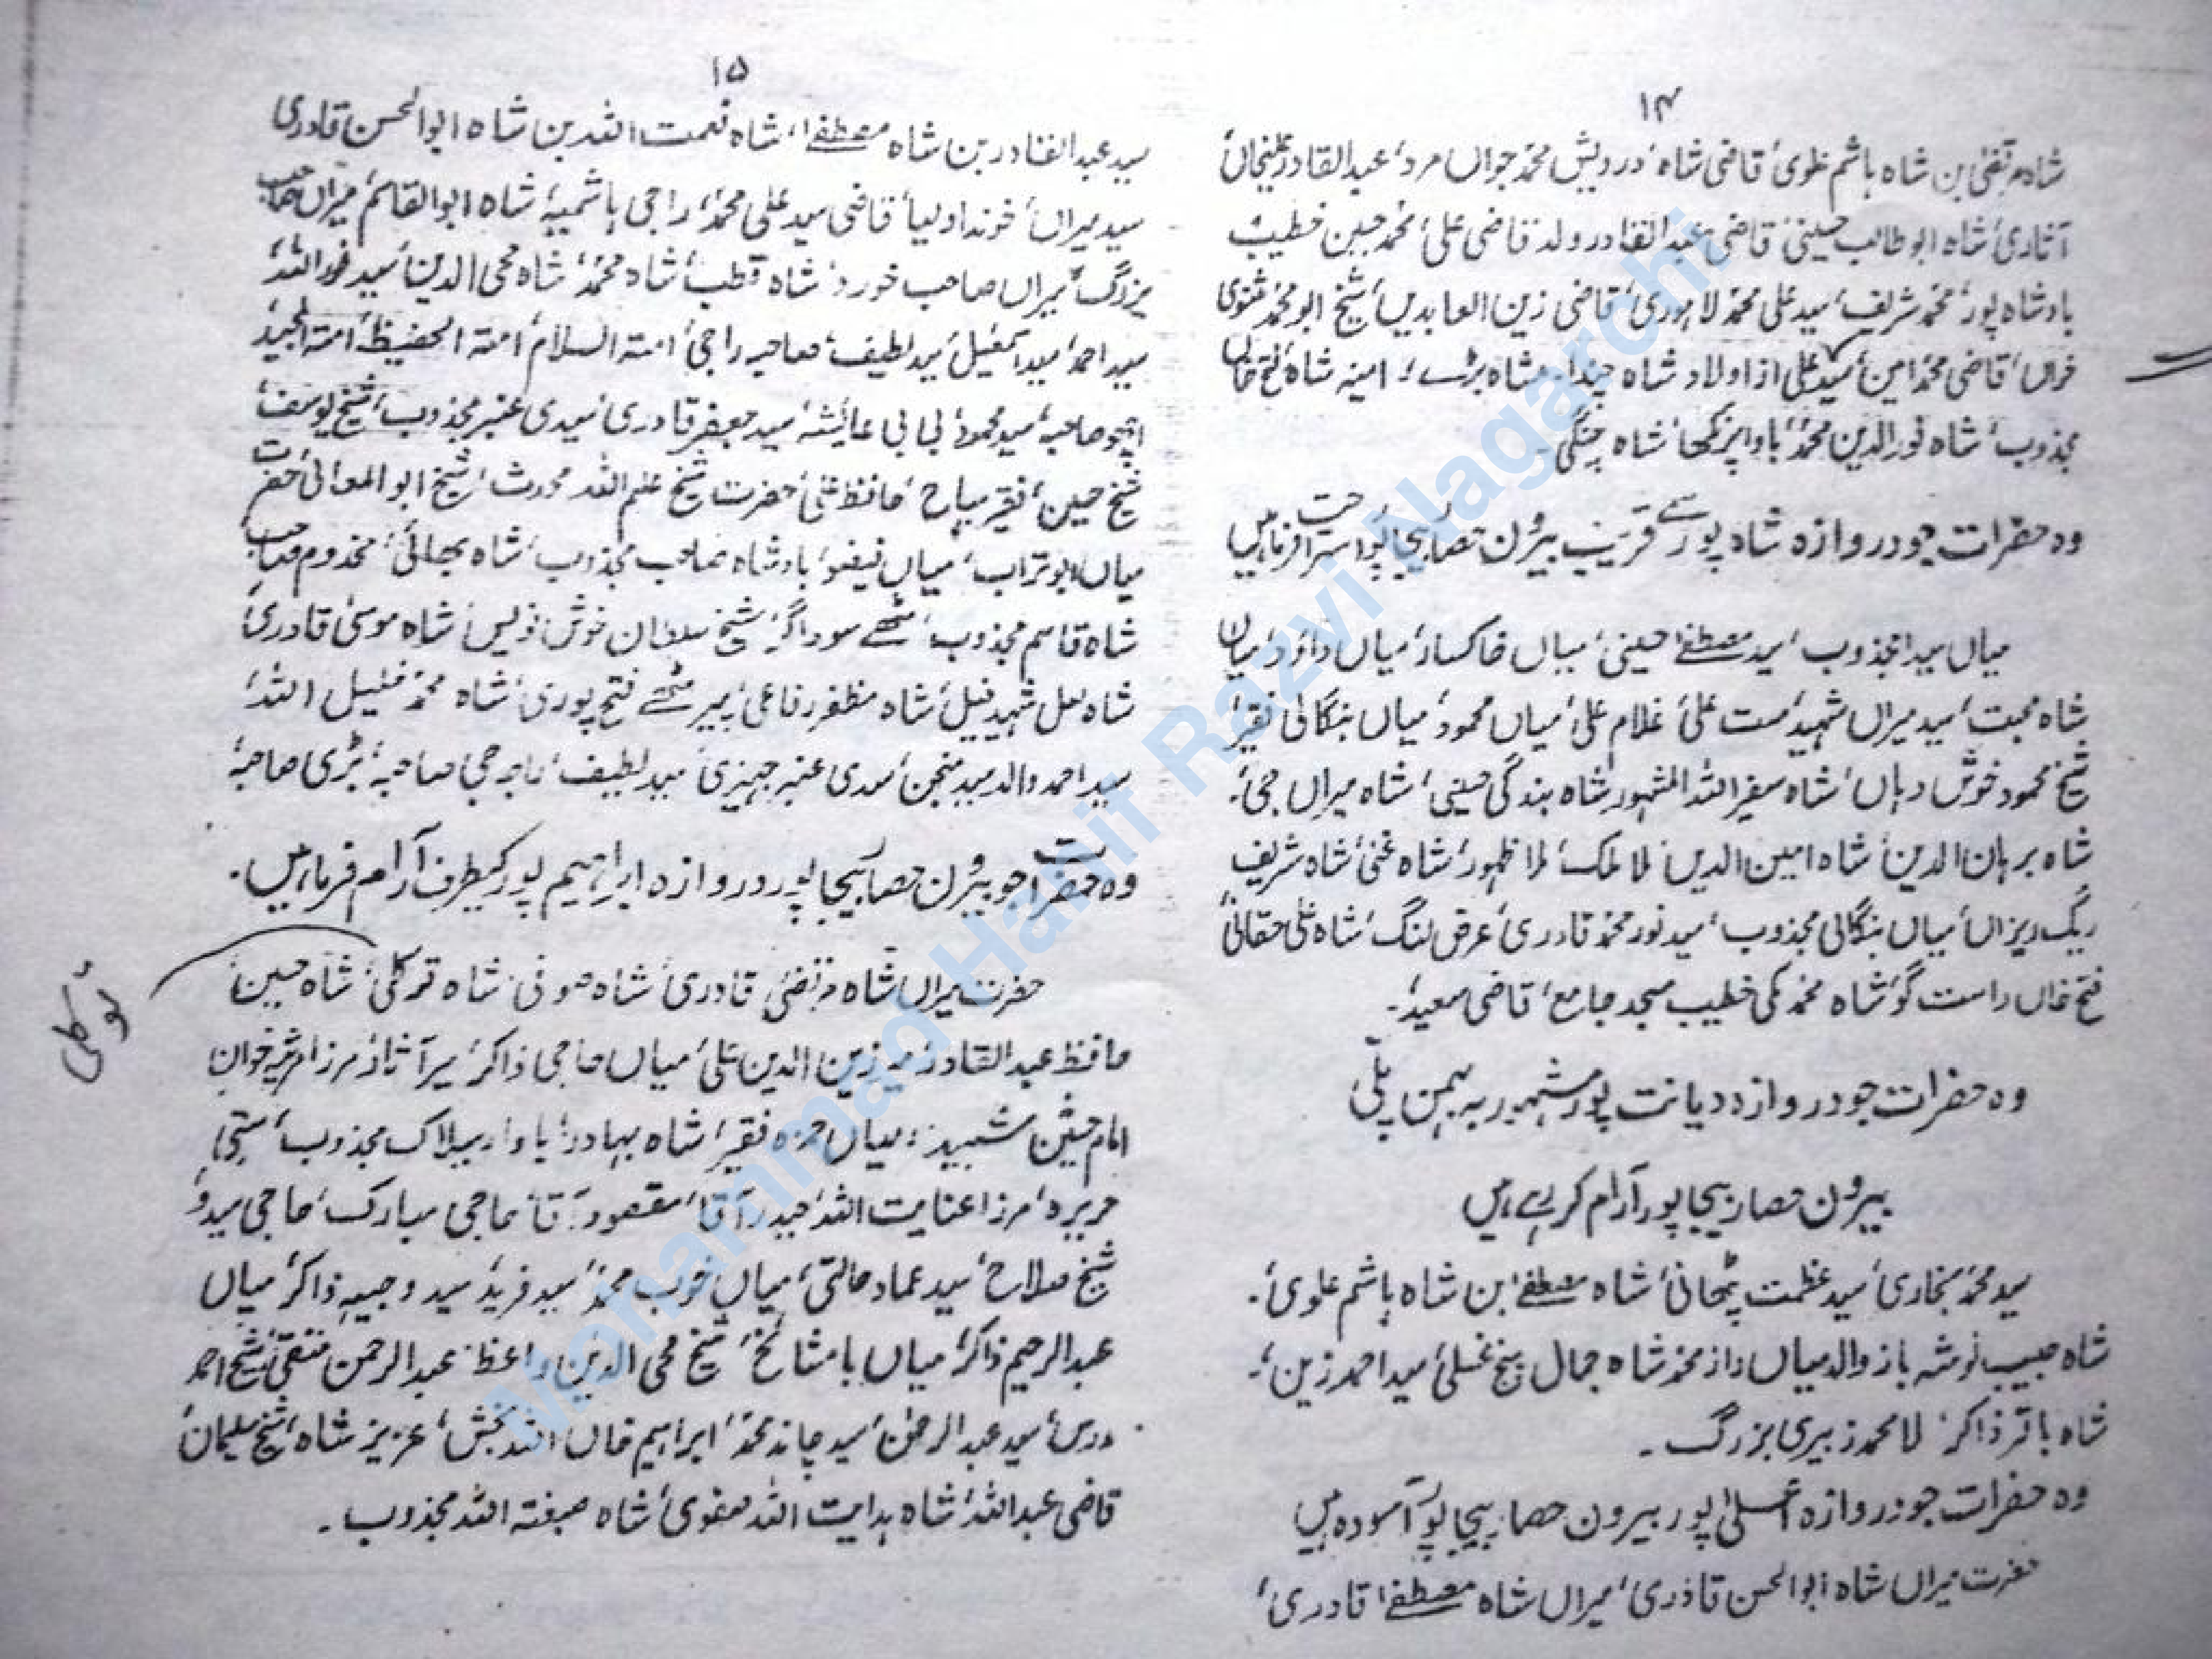 ۱۴
شاہ مرتضیٰ بن شاہ ہاشم علوی، قاضی شاہ، درویش محمد جواں مرد، عبدالقادر
آثاری، شاہ ابو طالب حسینی، قاضی عبدالقادر ولد قاضی علی، محمد حسین خطیب
بادشاہ پور، محمد شریف، سید علی محمد لاہوری، قاضی زین العابدین، شیخ ابو محمد مثنوی
خواں، قاضی محمد امین، سید علی از اولاد شاہ چندا، امینہ شاہ، فتح خاں
مجذوب، شاہ نورالدین محمد، باوا، شاہ جنگی۔
وہ حضرات جو دروازہ شاہ پور سے قریب بیرون حصار بیجاپور استراحت فرما ہیں
میاں سیدا مجذوب، سید مصطفےٰ حسینی، میاں خاکسار، میاں داؤد، میاں
شاہ محبت، سید میراں شہید، مست علی، غلام علی، میاں محمود، میاں بنگالی فقیر،
شیخ محمود خوش دہاں، شاہ سفر اللہ المشہور شاہ بندگی حسینی، شاہ میراں جی،
شاہ برہان الدین، شاہ امین الدین، ملا ملک، ملا ظہور، شاہ غنی، شاہ شریف
ریگ ریزاں، میاں بنگالی مجذوب، سید نور محمد قادری، عرض لنگ، شاہ علی حقانی،
فتح خاں راست گو، شاہ محمد مکی خطیب مسجد جامع، قاضی سعید۔
وہ حضرات جو دروازہ دیانت پور مشہور بہ بہمن ہلّی
بیرون حصار بیجاپور آرام کر رہے ہیں
سید محمد بخاری، سید عظمت پٹھانی، شاہ مصطفےٰ ابن شاہ ہاشم علوی،
شاہ حبیب نوشہ باز والد میاں راز محمد، شاہ جمال پنج غسلی، سید احمد زین،
شاہ باقر ذاکر، ملا محمد زبیری بزرگ۔
وہ حضرات جو دروازہ علی پور بیرون حصار بیجاپور آسودہ ہیں
حضرت میراں شاہ ابوالحسن قادری، میراں شاہ مصطفےٰ قادری،
۱۵
سید عبدالقادر بن شاہ مصطفےٰ، شاہ نعمت اللہ بن شاہ ابوالحسن قادری
سید میراں، خوند اولیا، قاضی سید علی محمد، راجی ہاشمیہ، شاہ ابوالقاسم، میراں صاحب
بزرگ، میراں صاحب خورد، شاہ قطب، شاہ محمد، شاہ محی الدین، سید نور اللہ،
سید احمد، سید اسمٰعیل، سید لطیف، صاحبہ راجی، امۃ السلام، امۃ الحفیظ، امۃ المجید،
اچھو صاحبہ، سید محمود، بی بی عائشہ، سید جعفر قادری، سیدی عنبر مجذوب، شیخ یوسف،
شیخ حسین، فقیر سیاح، حافظ، حضرت شیخ علم اللہ محدث، شیخ ابو المعالی، حضرت
میاں ابوتراب، میاں، بادشاہ صاحب مجذوب، شاہ بھائی، مخدوم صاحب
شاہ قاسم مجذوب، مٹھے سوداگر، شیخ سلطان خوش نویس، شاہ موسیٰ قادری،
شاہ لعل شہید فیل، شاہ مظفر رفاعی، پیر مٹھے فتح پوری، شاہ محمد خلیل اللہ،
سید احمد والد سید منجن، سیدی عنبر، سید لطیف، راجی صاحبہ، بڑی صاحبہ
وہ حضرات جو بیرون حصار بیجاپور دروازہ ابراہیم پور کیطرف آرام فرما ہیں۔
حضرت میراں شاہ مرتضیٰ قادری، شاہ صوفی، شاہ توکلی، شاہ حسین،
توکلی
حافظ عبدالقادر، میر زین الدین علی، میاں حاجی ذاکر، میر آثار، مرزا مرثیہ خوان
امام حسین شہید، میاں حمزہ فقیر، شاہ بہادر، باوا مجذوب،
حریرہ، مرزا عنایت اللہ، حیدر آقا، مقصود آقا، حاجی مبارک، حاجی سیدو
شیخ صلاح، سید عماد حالتی، میاں خوب محمد، سید فرید، سید وجیہ ذاکر، میاں
عبدالرحیم ذاکر، میاں با مشائخ، شیخ محی الدین واعظ، عبدالرحمن متقی، شیخ احمد
مدرس، سید عبدالرحمٰن، سید چاند محمد، ابراہیم خاں، اللہ بخش، عزیز شاہ، شیخ سلیمان،
قاضی عبداللہ، شاہ ہدایت اللہ صفوی، شاہ صبغتہ اللہ مجذوب۔
Mohammad Hanif Razvi Nagarchi